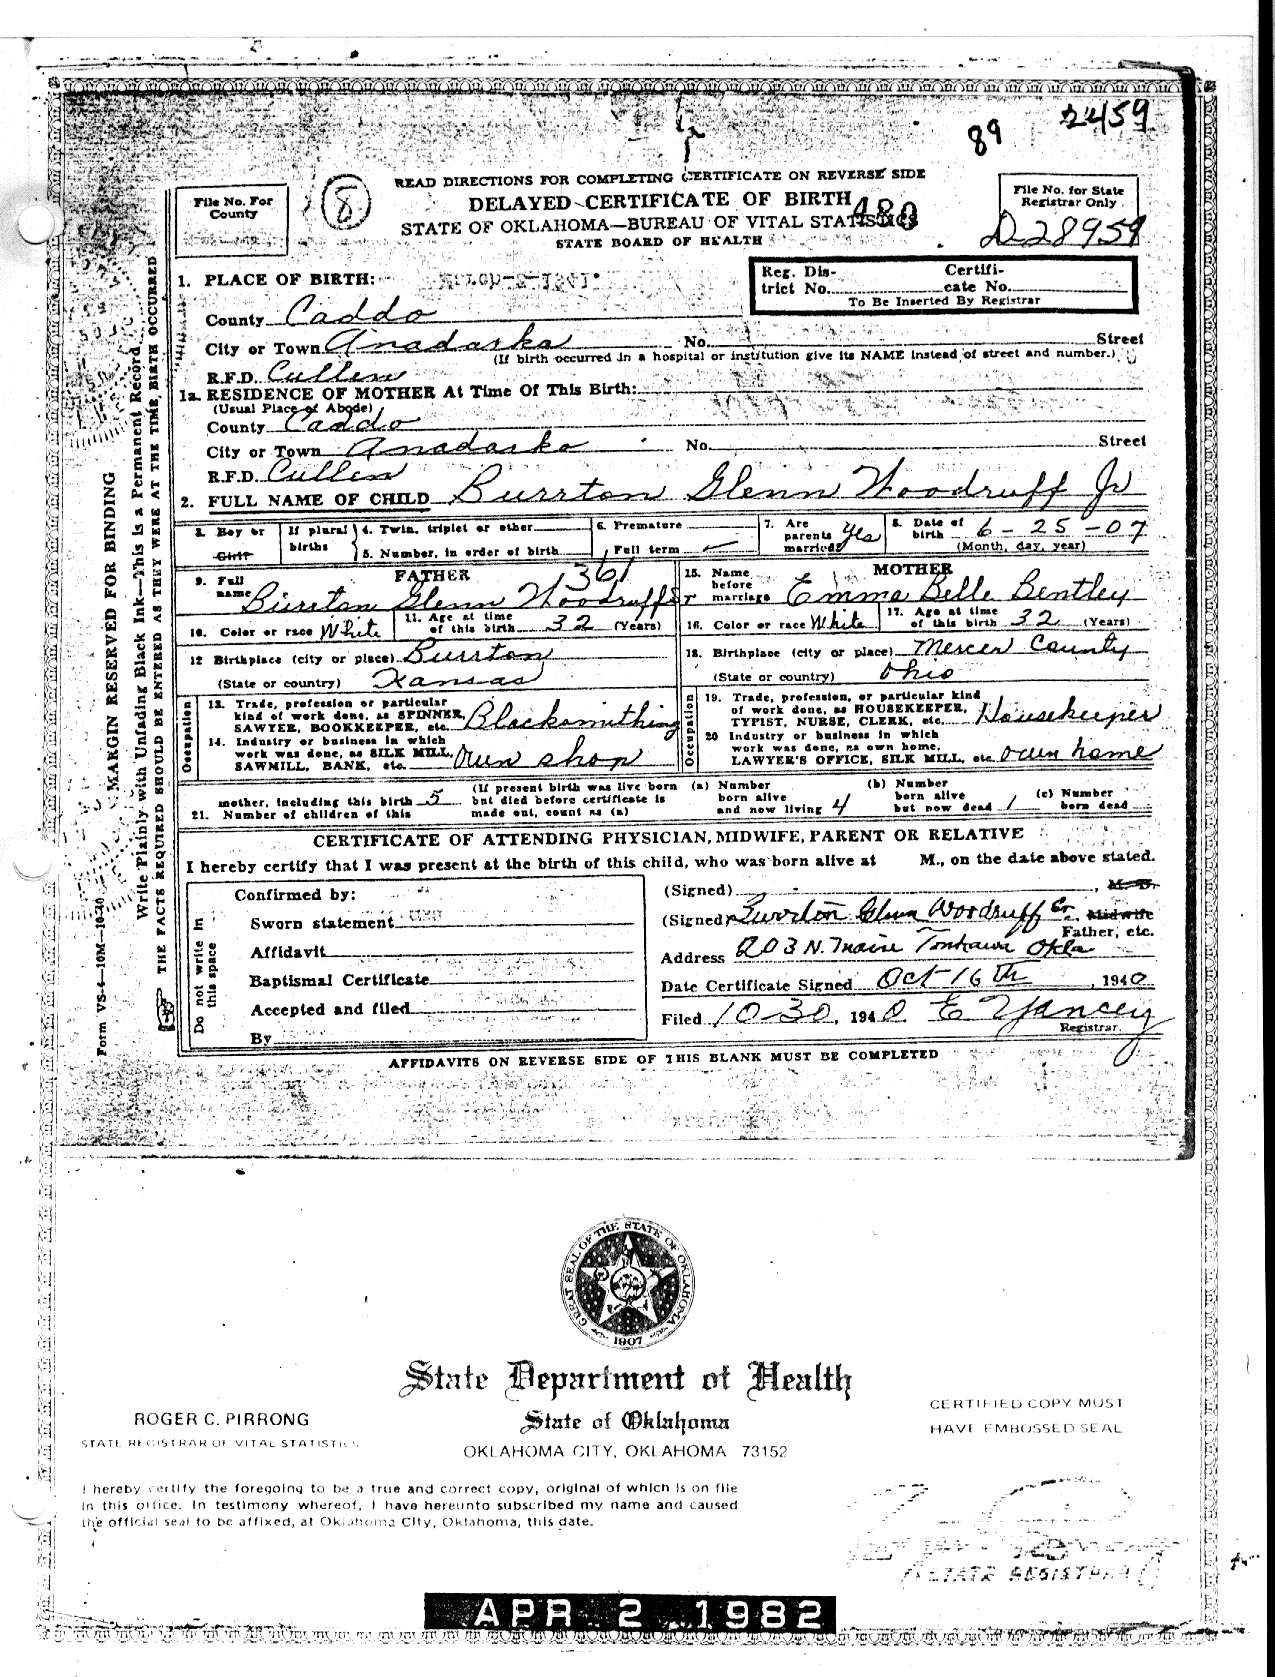 2459
89
READ DIRECTIONS FOR COMPLETING CERTIFICATE ON REVERSE SIDE
File No. For County
8
DELAYED CERTIFICATE OF BIRTH
480
STATE OF OKLAHOMA—BUREAU OF VITAL STATISTICS
STATE BOARD OF HEALTH
File No. for State Registrar Only
D-28959
1. PLACE OF BIRTH:
Reg. District No. Certificate No.
To Be Inserted By Registrar
County Caddo
City or Town Anadarka No. Street
(If birth occurred in a hospital or institution give its NAME instead of street and number.)
R.F.D. Cullen
1a. RESIDENCE OF MOTHER At Time Of This Birth:
(Usual Place of Abode)
County Caddo
City or Town Anadarko No. Street
R.F.D. Cullen
2. FULL NAME OF CHILD Burrton Glenn Woodruff Jr
3. Boy or Girl? If plural births 4. Twin, triplet or other 5. Number, in order of birth 6. Premature Full term ✓ 7. Are parents married? Yes 8. Date of birth 6-25-07 (Month, day, year)
FATHER 361
9. Full name Burrton Glenn Woodruff Sr
10. Color or race White 11. Age at time of this birth 32 (Years)
12 Birthplace (city or place) Burrton
(State or country) Kansas
Occupation
13. Trade, profession or particular kind of work done, as SPINNER, SAWYER, BOOKKEEPER, etc. Blacksmithing
14. Industry or business in which work was done, as SILK MILL, SAWMILL, BANK, etc. Own shop
MOTHER
15. Name before marriage Emma Belle Bentley
16. Color or race White 17. Age at time of this birth 32 (Years)
18. Birthplace (city or place) Mercer County
(State or country) Ohio
Occupation
19. Trade, profession, or particular kind of work done, as HOUSEKEEPER, TYPIST, NURSE, CLERK, etc. Housekeeper
20 Industry or business in which work was done, as own home, LAWYER'S OFFICE, SILK MILL, etc. own home
21. Number of children of this mother, including this birth 5 (If present birth was live born but died before certificate is made out, count as (a) (a) Number born alive and now living 4 (b) Number born alive but now dead 1 (c) Number born dead
CERTIFICATE OF ATTENDING PHYSICIAN, MIDWIFE, PARENT OR RELATIVE
I hereby certify that I was present at the birth of this child, who was born alive at M., on the date above stated.
Do not write in this space
Confirmed by:
Sworn statement
Affidavit
Baptismal Certificate
Accepted and filed
By
(Signed) , M. D.
(Signed) Burrton Glenn Woodruff Sr. Midwife
Father, etc.
Address 203 N. Main Tonkawa Okla
Date Certificate Signed Oct-16th, 1940
Filed 10-30, 1940. E Yancey
Registrar.
AFFIDAVITS ON REVERSE SIDE OF THIS BLANK MUST BE COMPLETED
Form VS-4—10M—10-40
MARGIN RESERVED FOR BINDING
Write Plainly with Unfading Black Ink—This is a Permanent Record
THE FACTS REQUIRED SHOULD BE ENTERED AS THEY WERE AT THE TIME BIRTH OCCURRED
GREAT SEAL OF THE STATE OF OKLAHOMA
1907
State Department of Health
State of Oklahoma
OKLAHOMA CITY, OKLAHOMA 73152
ROGER C. PIRRONG
STATE REGISTRAR OF VITAL STATISTICS
CERTIFIED COPY MUST
HAVE EMBOSSED SEAL
I hereby certify the foregoing to be a true and correct copy, original of which is on file
in this office. In testimony whereof, I have hereunto subscribed my name and caused
the official seal to be affixed, at Oklahoma City, Oklahoma, this date.
STATE REGISTRAR
APR 2 1982